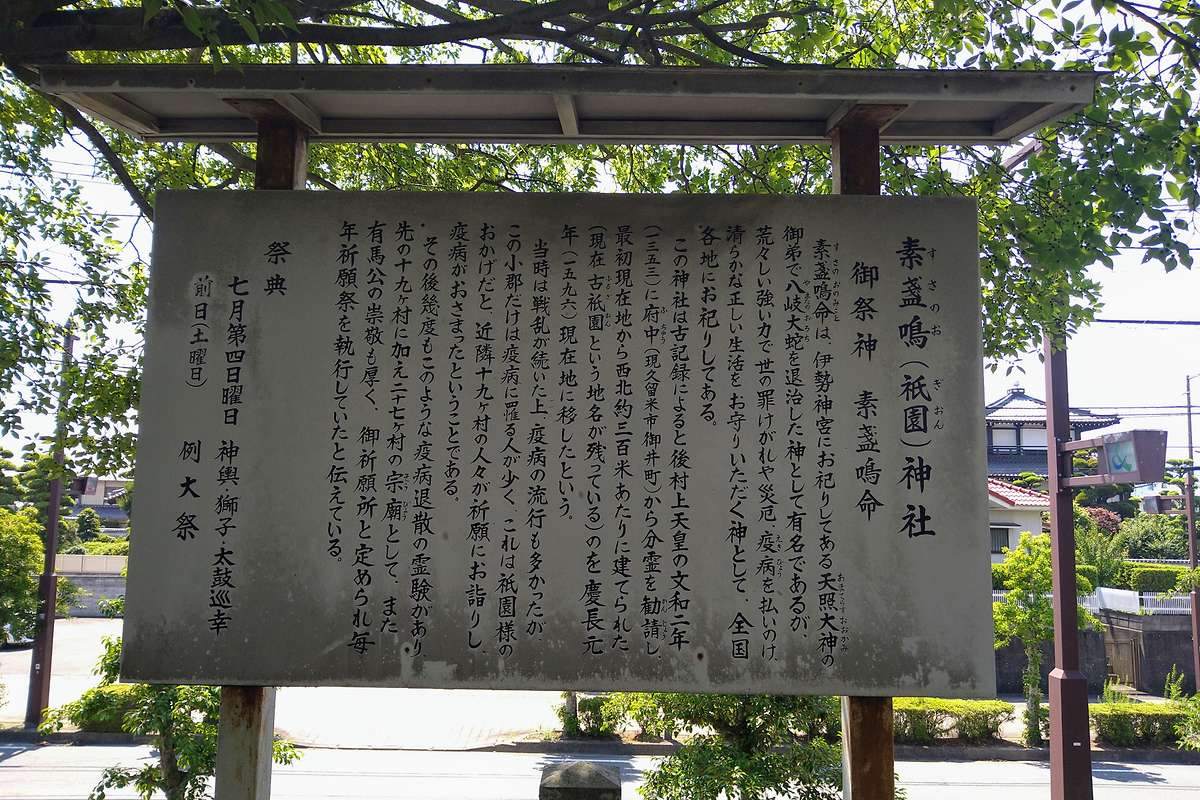 素盞嗚(祇園)神社
すさのお ぎおん
御祭神 素盞嗚命
素盞嗚命は、伊勢神宮にお祀りしてある天照大神の
すさのおのみこと あまてらすおおかみ
御弟で八岐大蛇を退治した神として有名であるが、
やまたのおろち
荒々しい強い力で世の罪けがれや災厄、疫病を払いのけ、
えきびょう
清らかな正しい生活をお守りいただく神として、全国
各地にお祀りしてある。
この神社は古記録によると後村上天皇の文和二年
(一三五三)に府中(現久留米市御井町)から分霊を勧請し、
ふちゅう かんじょう
最初現在地から西北約三百米あたりに建てられた
(現在古祇園という地名が残っている)のを慶長元
ふるぎおん
年(一五九六)現在地に移したという。
当時は戦乱が続いた上、疫病の流行も多かったが、
この小郡だけは疫病に罹る人が少く、これは祇園様の
おかげだと、近隣十九ヶ村の人々が祈願にお詣りし、
疫病がおさまったということである。
その後幾度もこのような疫病退散の霊験があり、
先の十九ヶ村に加え二十七ヶ村の宗廟として、また
びょう
有馬公の崇敬も厚く、御祈願所と定められ毎
年祈願祭を執行していたと伝えている。
祭典
七月第四日曜日 神輿獅子・太鼓巡幸
前日(土曜日) 例大祭